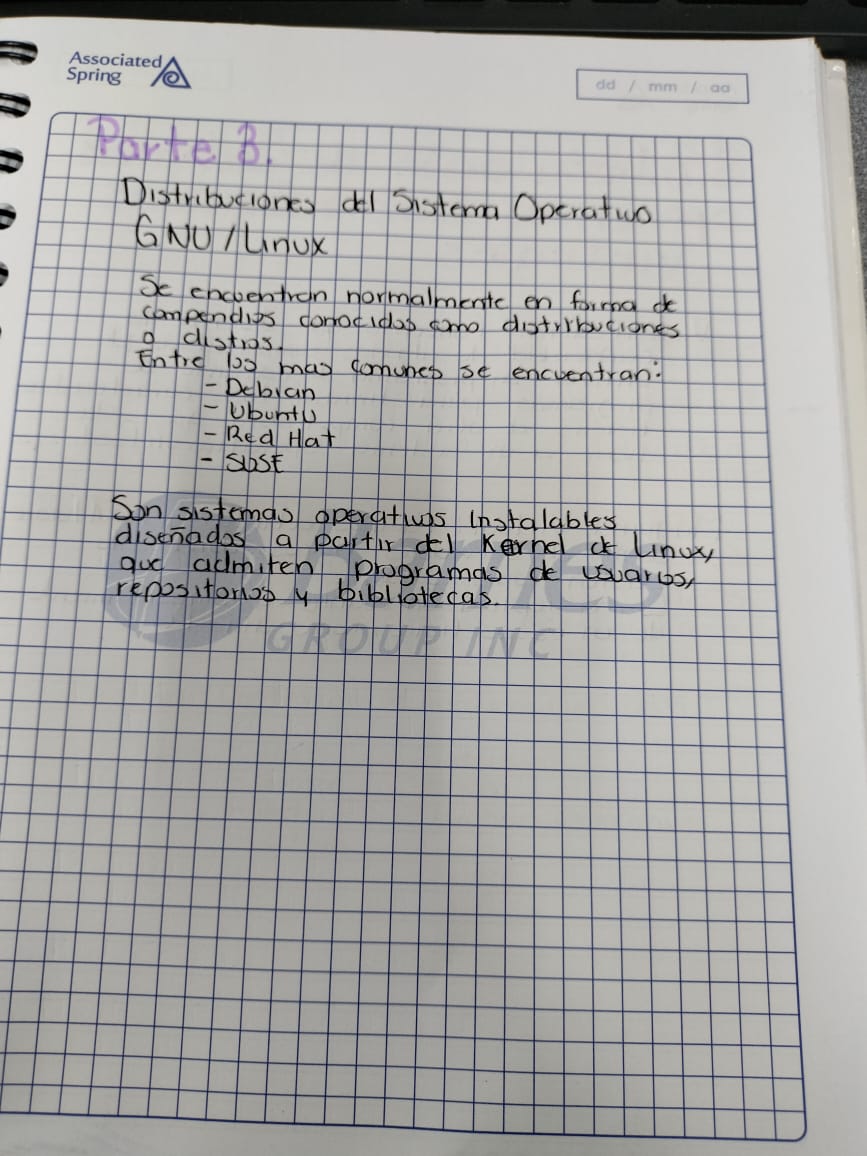 Associated
Spring
dd / mm / aa
Parte 3.
Distribuciones del Sistema Operativo
GNU/Linux
Se encuentran normalmente en forma de
compendios conocidos como distribuciones
o distros.
Entre los mas comunes se encuentran:
- Debian
- Ubuntu
- Red Hat
- SUSE
Son sistemas operativos instalables
diseñados a partir del Kernel de Linux,
que admiten programas de usuarios,
repositorios y bibliotecas.
GROUP INC